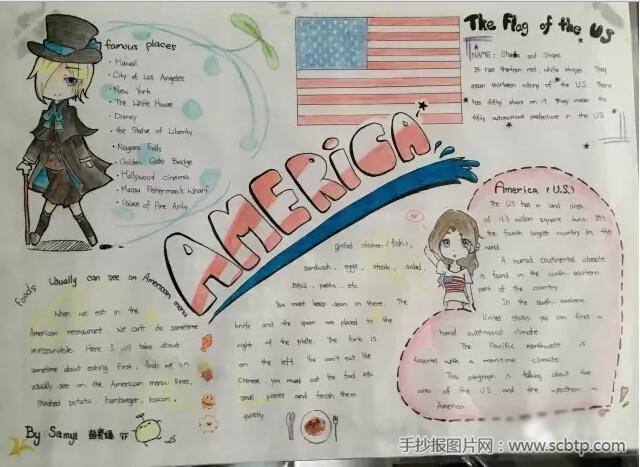 famous places
• Hawaii
• City of Los Angeles
• New York
• The White House
• Disney
• the Statue of Liberty
• Niagara Falls
• Golden Gate Bridge
• Hollywood cinema
• Fisherman's Wharf
• Palace of Fine Arts
The Flag of the US
NAME: and Stripes
It has thirteen red, white stripes. They
mean thirteen colony of the U.S. There
has fifty stars on it they mean the
fifty autonomous prefecture in the U.S
AMERICA
America (U.S.)
The US has a land area
of 9.3 million square kms. It's
the fourth largest country in the
world.
A humid continental climate
is found in the north-eastern
part of the country.
In the south-eastern
United states you can find a
humid subtropical climate.
The Pacific northwest is
favored with a maritime climate.
This paragraph is talking about the
area of the U.S and the weather in
America
Foods Usually can see on American menu
When we eat in the
American restaurant. We can't do sometime
irresponsible. Here I will take about
sometime about eating. First, we can
usually see on the American menu: Fries,
mashed potato, hamburger, bacon,
grilled chicken (fish),
sandwich, eggs, steak, salad,
BBQ, pasta, etc.
You must keep clean in there. The
knife and the spoon are placed to the
right of the plate. The fork is
on the left. You can't eat like
Chinese, you must cut the food into
small pieces and finish them
quietly
By: Samyi
手抄报图片网:www.scbtp.com